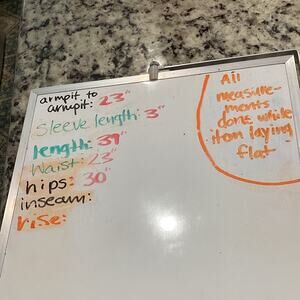 armpit to
armpit: 23"
Sleeve length: 3"
length: 39"
Waist: 23"
hips: 30"
inseam:
rise:
All
measure-
ments
done while
item laying
flat